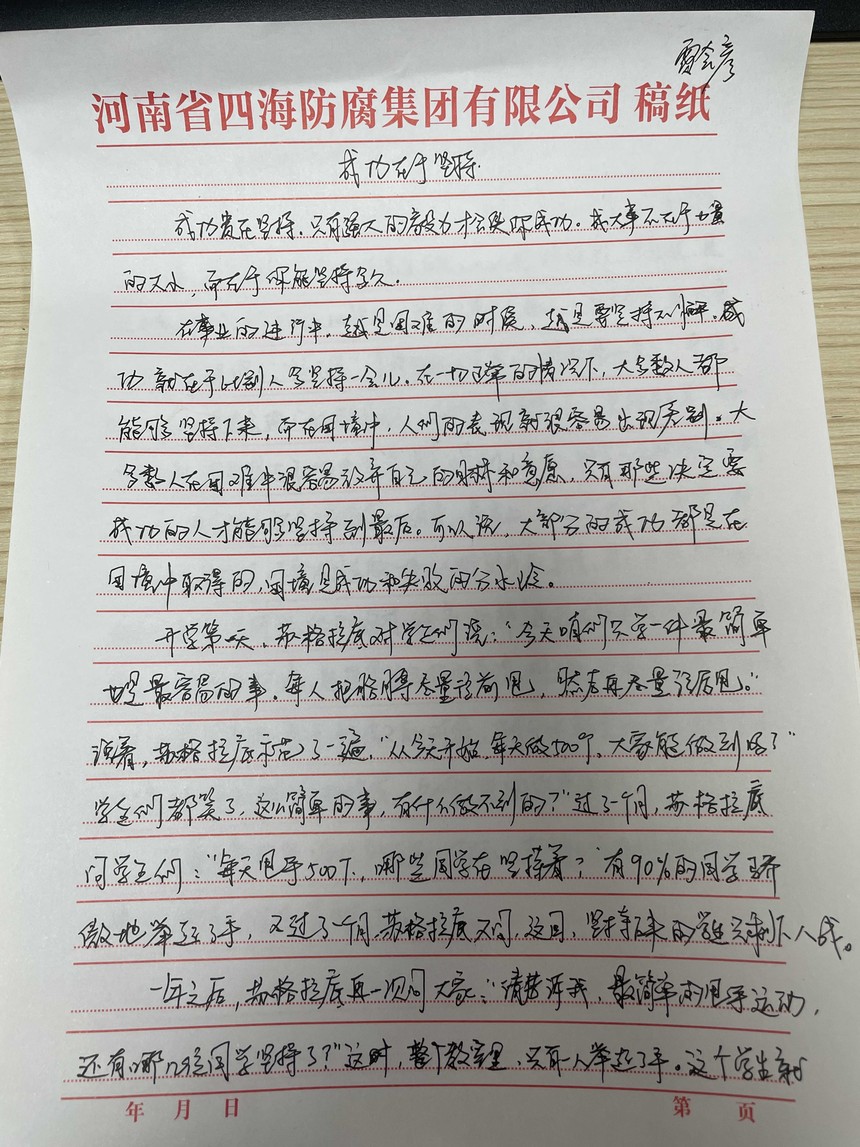 雷会彦
河南省四海防腐集团有限公司 稿纸
成功在于坚持
成功贵在坚持,只有强大的毅力才会使你成功。成大事不在于力量
的大小,而在于你能坚持多久。
在事业的进行中,越是困难的时候,越是要坚持不懈。成
功就在于比别人多坚持一会儿。在一切正常的情况下,大多数人都
能够坚持下来,而在困境中,人们的表现就很容易出现差别。大
多数人在困难中很容易放弃自己的目标和意愿,只有那些决定要
成功的人才能够坚持到最后。可以说,大部分的成功都是在
困境中取得的,困境是成功和失败的分水岭。
开学第一天,苏格拉底对学生们说:“今天咱们只学一件最简单
也是最容易的事。每人把胳膊尽量往前甩,然后再尽量往后甩。”
说着,苏格拉底示范了一遍,“从今天开始,每天做500下,大家能做到吗?”
学生们都笑了,这么简单的事,有什么做不到的?”过了一个月,苏格拉底
问学生们:“每天甩手500下,哪些同学在坚持着?”有90%的同学骄
傲地举起了手,又过了一个月,苏格拉底又问,这回,坚持下来的学生只剩下八成。
一年之后,苏格拉底再一次问大家:“请告诉我,最简单的甩手运动,
还有哪几位同学坚持了?”这时,整个教室里,只有一人举起了手。这个学生就
年 月 日
第 页